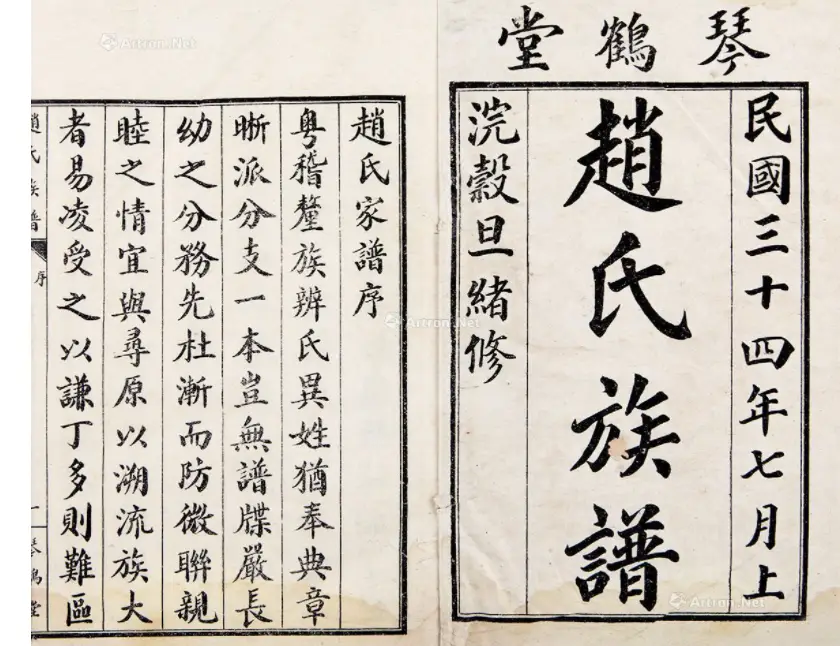 琴鶴堂
民國三十四年七月上
趙氏族譜
浣穀旦緒修
趙氏家譜序
粵稽釐族辨氏異姓猶奉典章
晰派分支一本豈無譜牒嚴長
幼之分務先杜漸而防微聯親
睦之情宜與尋原以溯流族大
者易凌受之以謙丁多則難區
趙氏族譜
序
一
琴鶴堂
Artron.Net
Artron.Net
Artron.Net